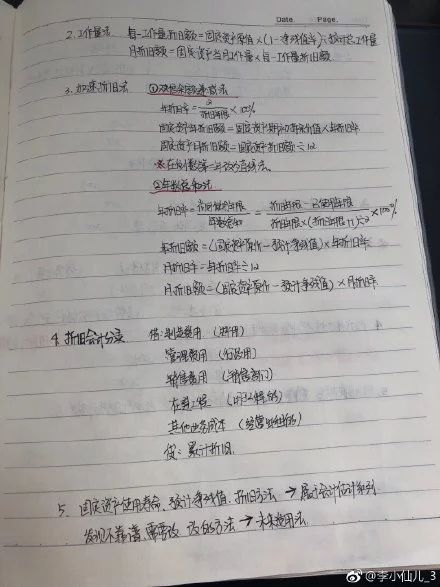 Date. Page.
2.工作量法 每一工作量折旧额=固定资产原值×(1-净残值率)÷预计总工作量
月折旧额=固定资产当月工作量×每一工作量折旧额
3.加速折旧法 ①双倍余额递减法
年折旧率=2/折旧年限×100%
固定资产年折旧额=固定资产期初账面价值×年折旧率
固定资产月折旧额=固定资产年折旧额÷12
※在倒数第二年改为直线法.
②年数总和法
年折旧率=尚可使用年限/年数总和=折旧年限-已使用年限/折旧年限×(折旧年限+1)÷2×100%
年折旧额=(固定资产原价-预计净残值)×年折旧率
月折旧率=年折旧率÷12
月折旧额=(固定资产原价-预计净残值)×月折旧率.
4.折旧会计分录 借:制造费用(车间用)
管理费用(行政用)
销售费用(销售部门)
在建工程
其他业务成本(经营出租的)
贷:累计折旧.
5.固定资产使用寿命、预计净残值、折旧方法→属于会计估计
发现不靠谱,需要改 改的方法→未来适用法.
@李小仙儿_3